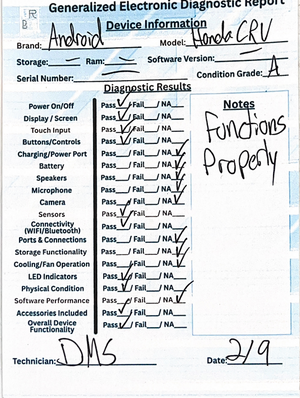 Generalized Electronic Diagnostic Report
Device Information
Brand: Android Model: Honda CRV
Storage: — Ram: — Software Version: —
Serial Number: — Condition Grade: A
Diagnostic Results
Power On/Off Pass ✓/Fail__/ NA__
Display / Screen Pass ✓/Fail__/ NA__
Touch Input Pass ✓/Fail__/ NA__
Buttons/Controls Pass ✓/Fail__/ NA__
Charging/Power Port Pass__/ Fail__/ NA ✓
Battery Pass__/ Fail__/ NA ✓
Speakers Pass__/ Fail__/ NA ✓
Microphone Pass__/ Fail__/ NA ✓
Camera Pass__/ Fail__/ NA ✓
Sensors Pass ✓/Fail__/ NA__
Connectivity (WIFI/Bluetooth) Pass ✓/Fail__/ NA__
Ports & Connections Pass__/ Fail__/ NA ✓
Storage Functionality Pass__/ Fail__/ NA ✓
Cooling/Fan Operation Pass__/ Fail__/ NA ✓
LED Indicators Pass ✓/Fail__/ NA__
Physical Condition Pass ✓/Fail__/ NA__
Software Performance Pass__/ Fail__/ NA ✓
Accessories Included Pass ✓/Fail__/ NA__
Overall Device Functionality Pass ✓/Fail__/ NA__
Notes
Functions
Properly
Technician: DMS Date: 2/9